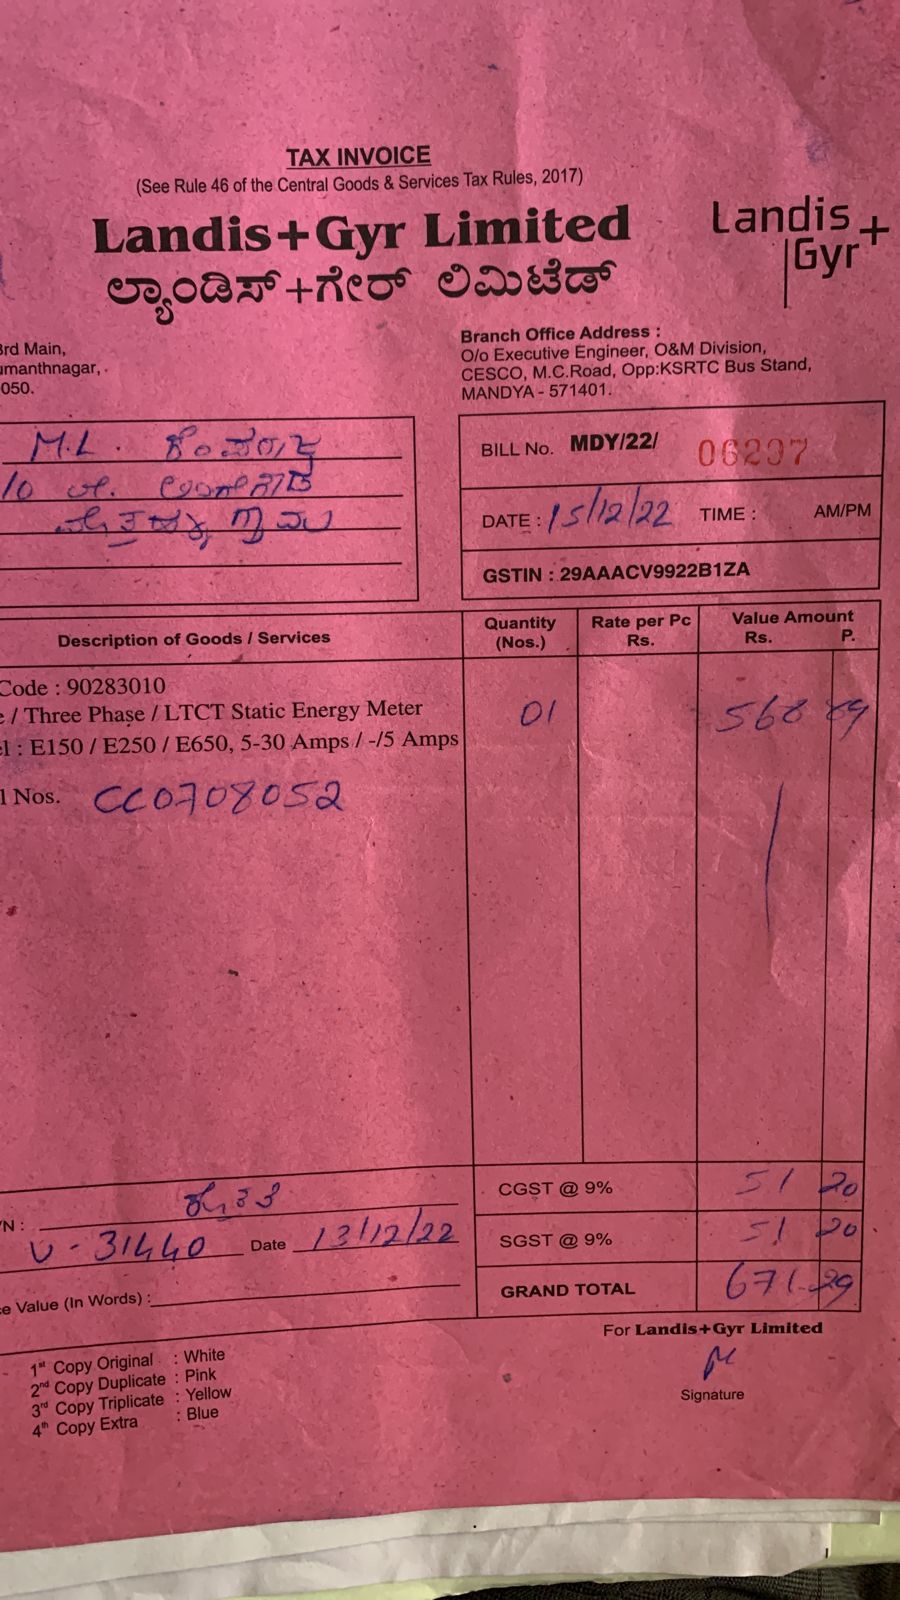 TAX INVOICE
(See Rule 46 of the Central Goods & Services Tax Rules, 2017)
Landis+Gyr Limited
ಲ್ಯಾಂಡಿಸ್+ಗೇರ್ ಲಿಮಿಟೆಡ್
Landis+
Gyr
3rd Main,
umanthnagar,
050.
Branch Office Address :
O/o Executive Engineer, O&M Division,
CESCO, M.C.Road, Opp:KSRTC Bus Stand,
MANDYA - 571401.
M.L. ಕೆಂಪರಾಜ
BILL No. MDY/22/ 06297
DATE : 15/12/22 TIME : AM/PM
GSTIN : 29AAACV9922B1ZA
Description of Goods / Services
Quantity (Nos.)
Rate per Pc Rs.
Value Amount Rs. P.
Code : 90283010
e / Three Phase / LTCT Static Energy Meter 01 568 89
el : E150 / E250 / E650, 5-30 Amps / -/5 Amps
l Nos. CC0708052
CGST @ 9% 51 20
/N :
SGST @ 9% 51 20
U-31440 Date 13/12/22
GRAND TOTAL 671-29
ce Value (In Words) :
For Landis+Gyr Limited
Signature
1st Copy Original : White
2nd Copy Duplicate : Pink
3rd Copy Triplicate : Yellow
4th Copy Extra : Blue